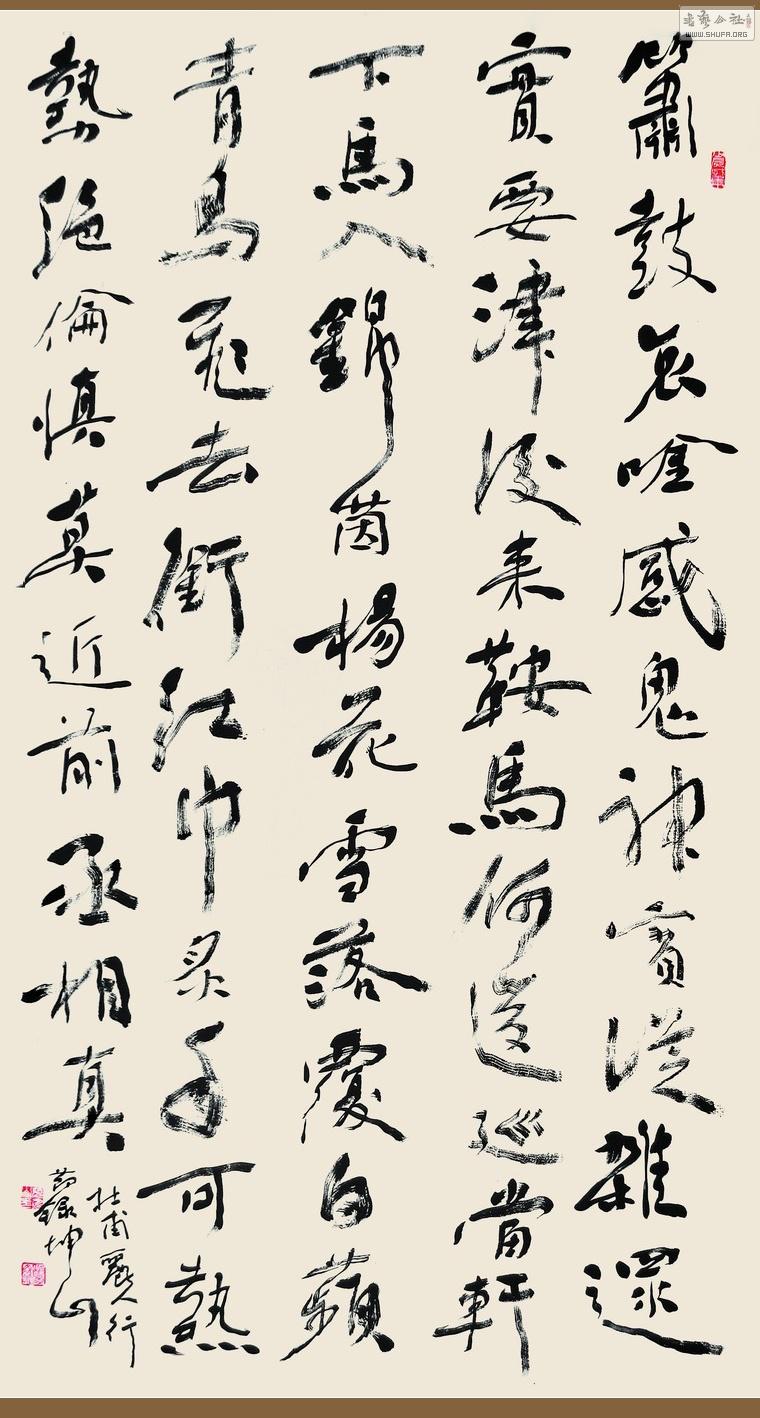 簫鼓哀唫感鬼神賓從雜遝
實要津後來鞍馬何逡巡當軒
下馬入錦茵楊花雪落覆白蘋
青鳥飛去銜紅巾炙手可熱
勢絕倫慎莫近前丞相真
杜甫麗人行
節錄坤山
書藝公社
WWW.SHUFA.ORG